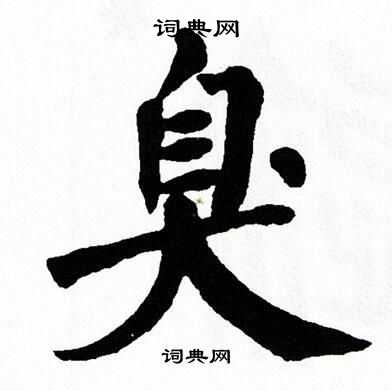 词典网
臭
词典网